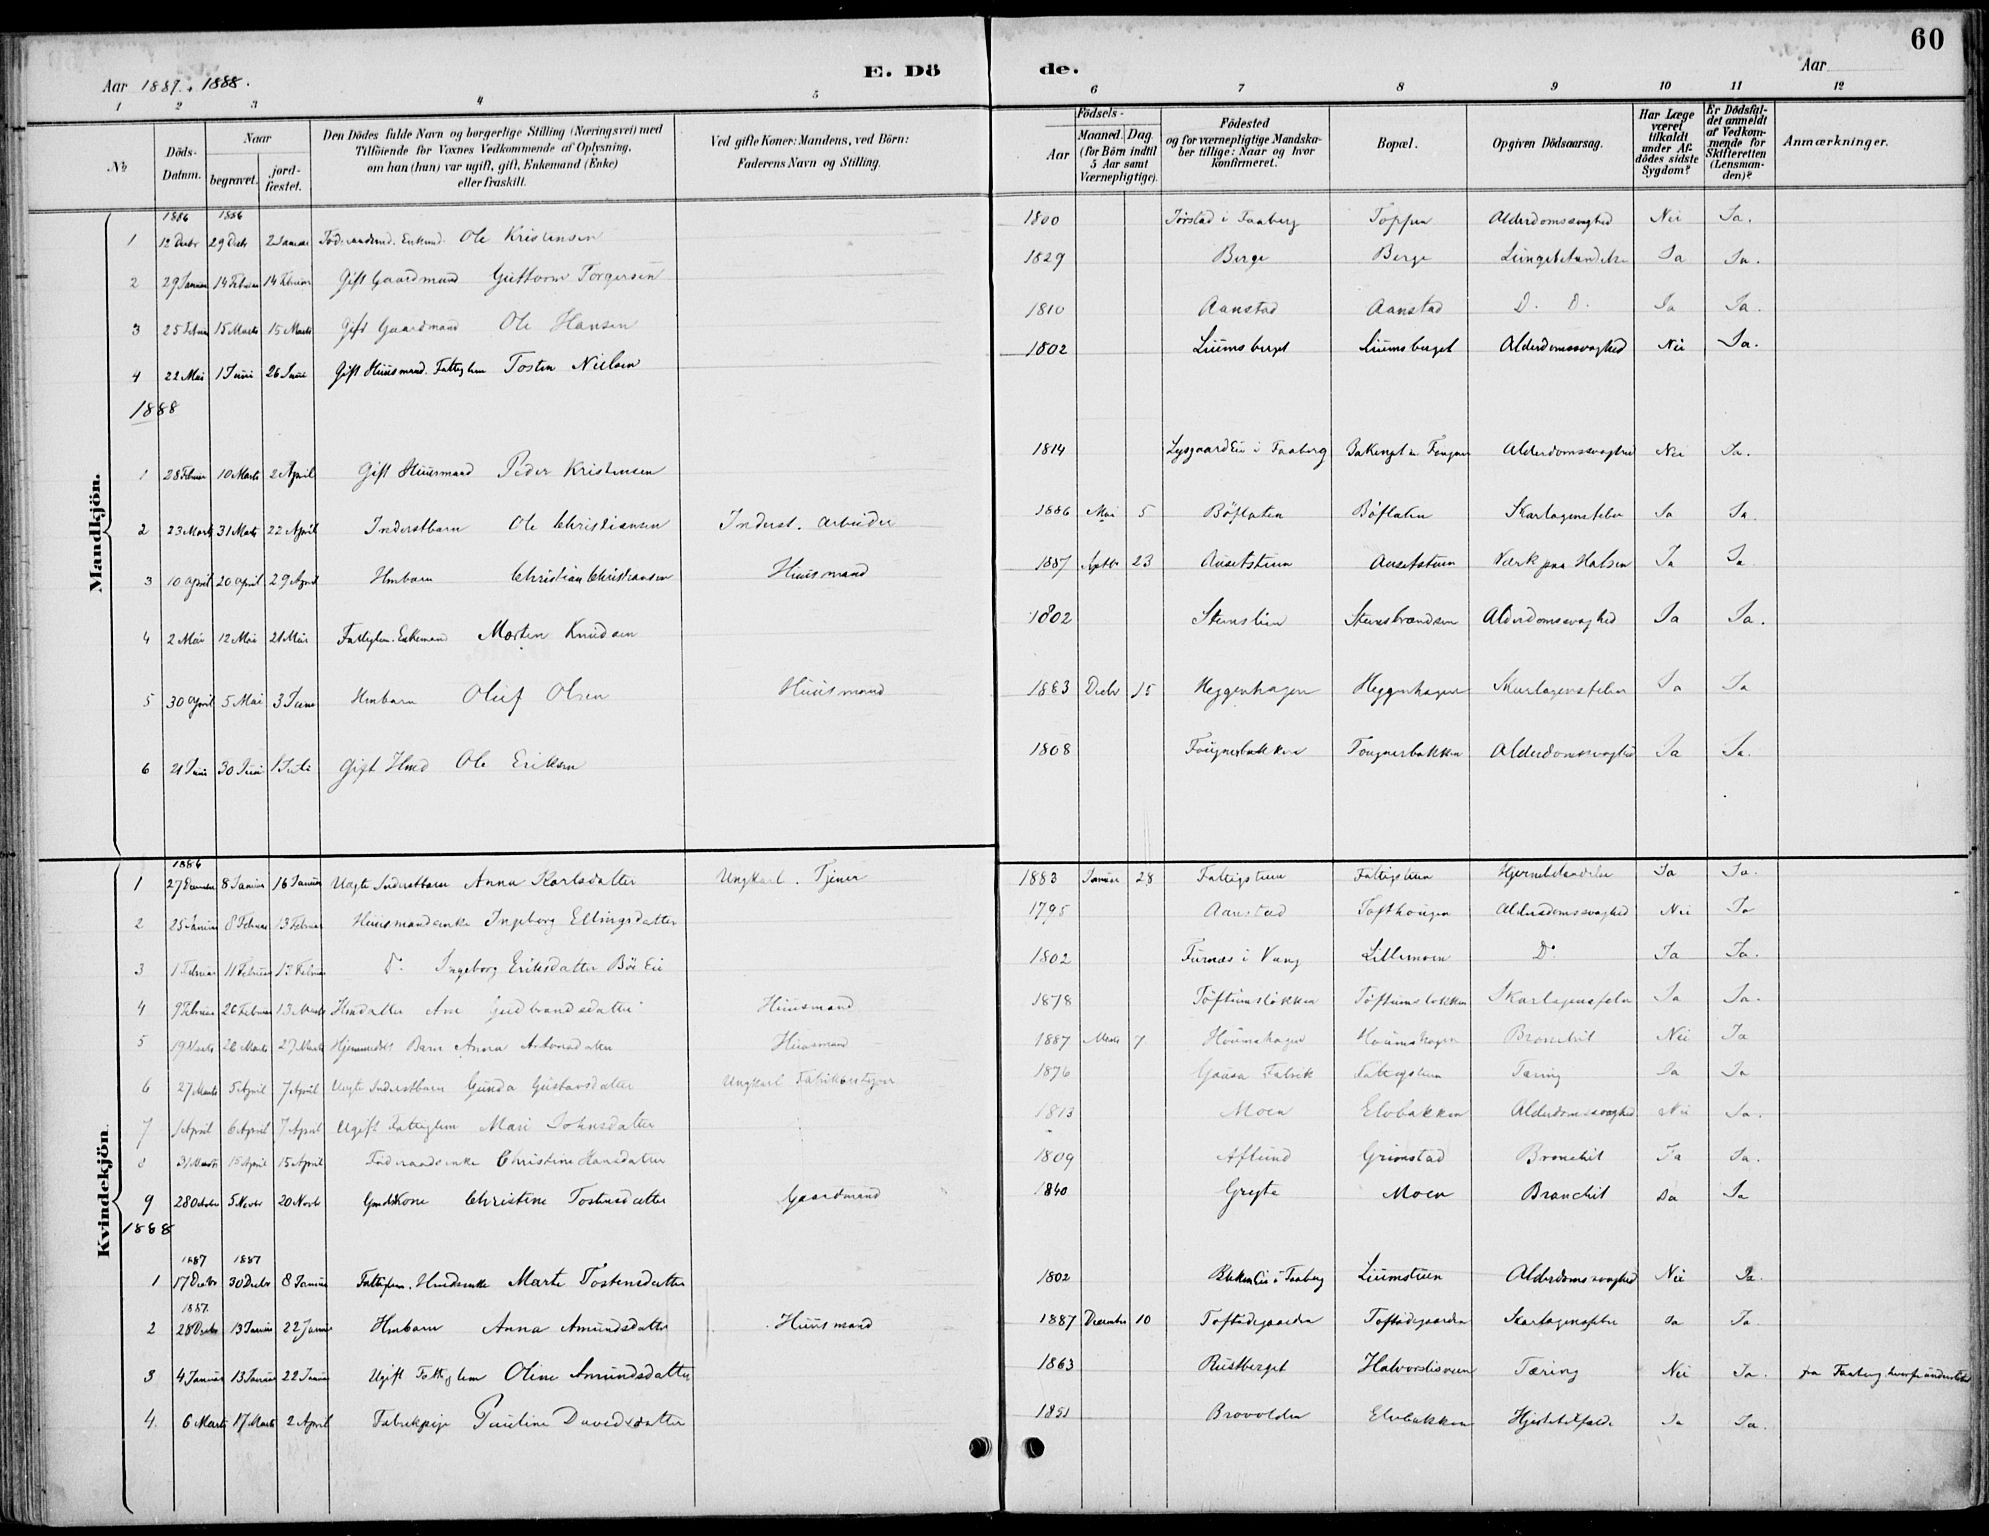 60
Aar 1887 & 1888.
E. Döde.
Aar
1 2 3 4 5 6 7 8 9 10 11 12
No
Döds-Datum.
Naar begravet. jordfæstet.
Den Dödes fulde Navn og borgerlige Stilling (Næringsvei) med
Tilföiende for Voxnes Vedkommende af Oplysning,
om han (hun) var ugift, gift, Enkemand (Enke)
eller fraskilt.
Ved gifte Koner: Mandens, ved Börn:
Faderens Navn og Stilling.
Födsels-
Aar Maaned. Dag.
(for Börn indtil 5 Aar samt Værnepligtige).
Födested
og for værnepligtige Mandskaber tillige: Naar og hvor konfirmeret.
Bopæl.
Opgiven Dödsaarsag.
Har Læge været tilkaldt under Afdödes sidste Sygdom?
Er Dödsfaldet anmeldt af Vedkommende for Skifteretten (Lensmanden)?
Anmærkninger.
Mandkjön.
1886 1886
1 12 Decbr 29 Decbr 2 Januar Föd.raadsmd. Enkemd. Ole Kristensen 1800 Jörstad i Faaberg Toppen Alderdomssvaghed Nei Ja.
2 29 Januar 14 Februar 14 Februar Gift Gaardmand Guttorm Torgersen 1829 Berge Berge Lungebetændelse Ja Ja.
3 25 Februar 15 Marts 15 Marts Gift Gaardmand Ole Hansen 1810 Aanstad Aanstad D. D. Ja Ja.
4 22 Mai 1 Juni 26 Juni Gift Huusmand. Fattiglem Tosten Nielsen 1802 Liumsberget Liumsberget Alderdomssvaghed Nei Ja.
1888
1 28 Februar 10 Marts 2 April Gift Huusmand Peder Kristensen 1814 Lysgaard Eie i Faaberg Bakengt u. Fougner Alderdomssvaghed Nei Ja.
2 23 Marts 31 Marts 22 April Inderstbarn Ole Christiansen Inderst. Arbeider 1886 Mai 5 Böflaten Böflaten Skarlagensfeber Ja Ja.
3 10 April 20 April 29 April Hmbarn Christian Christiansen Huusmand 1887 Septbr 23 Ausetstuen Ausetstuen Værk paa Halsen Ja Ja
4 2 Mai 12 Mai 21 Mai Fattiglem. Enkemand Morten Knudsen 1802 Stenslien Stensbrændsen Alderdomssvaghed Ja Ja.
5 30 April 5 Mai 3 Juni Hmbarn Oluf Olsen Huusmand 1883 Decbr 15 Heggenhagen Heggenhagen Skarlagensfeber Ja Ja
6 21 Juni 30 Juni 1 Juli Gift Hmd Ole Eriksen 1808 Fougnerbakken Fougnerbakken Alderdomssvaghed Ja Ja.
Kvindekjön.
1886
1 27 December 8 Januar 16 Januar Uægte Inderstbarn Anna Karlsdatter Ungkarl. Tjener 1883 Januar 28 Fattigstuen Fattigstuen Hjernebetændelse Ja Ja.
2 25 Januar 8 Februar 13 Februar Huusmandsenke Ingeborg Ellingsdatter 1795 Aanstad Tofthougen Alderdomssvaghed Nei Ja
3 1 Februar 11 Februar 13 Februar D. Ingeborg Eriksdatter Böe Eie 1802 Furnæs i Vang Lillemoen D. Ja Ja.
4 9 Februar 26 Februar 13 Marts Hmdatter Ane Gudbrandsdatter Huusmand 1878 Töftumslökken Töftumslökken Skarlagensfeber Ja Ja.
5 19 Marts 26 Marts 27 Marts Hjemmedöbt Barn Anna Antonsdatter Huusmand 1887 Marts 7 Houmshagen Houmshagen Bronchit Nei Ja
6 27 Marts 5 April 7 April Uægte Inderstbarn Gunda Gustavsdatter Ungkarl 1876 Gausa Fabrik Fattigstuen Tæring Ja Ja
7 1 April 6 April 7 April Ugift Fattiglem Mari Johnsdatter 1813 Moen Elvbakken Alderdomssvaghed Nei Ja.
8 31 Marts 15 April 15 April Föderaadsenke Christine Hansdatter 1809 Aflund Grimstad Bronchit Ja Ja.
9 28 October 5 Novbr 20 Novbr Gmdskone Christine Tostensdatter Gaardmand 1840 Grytte Moen Bronchit Ja Ja
1888
1887 1887
1 17 Decbr 30 Decbr 8 Januar Fattiglem. Hmdsenke Marte Tostensdatter 1802 Bakken Eie i Faaberg Liumstuen Alderdomssvaghed Nei Ja.
1887.
2 28 Decbr 13 Januar 22 Januar Hmbarn Anna Amundsdatter Huusmand 1887 December 10 Toftadegaarden Toftadegaarden Skarlagensfeber Ja Ja.
3 4 Januar 13 Januar 22 Januar Ugift Fattiglem Oline Amundsdatter 1863 Rustberget Halvorslisveen Tæring Nei Ja. fra Faaberg
4. 6 Marts 17 Marts 2 April Fabrikpige Pauline Davidsdatter 1851 Brovolden Elvebakken Hjertetilfælde Ja Ja.